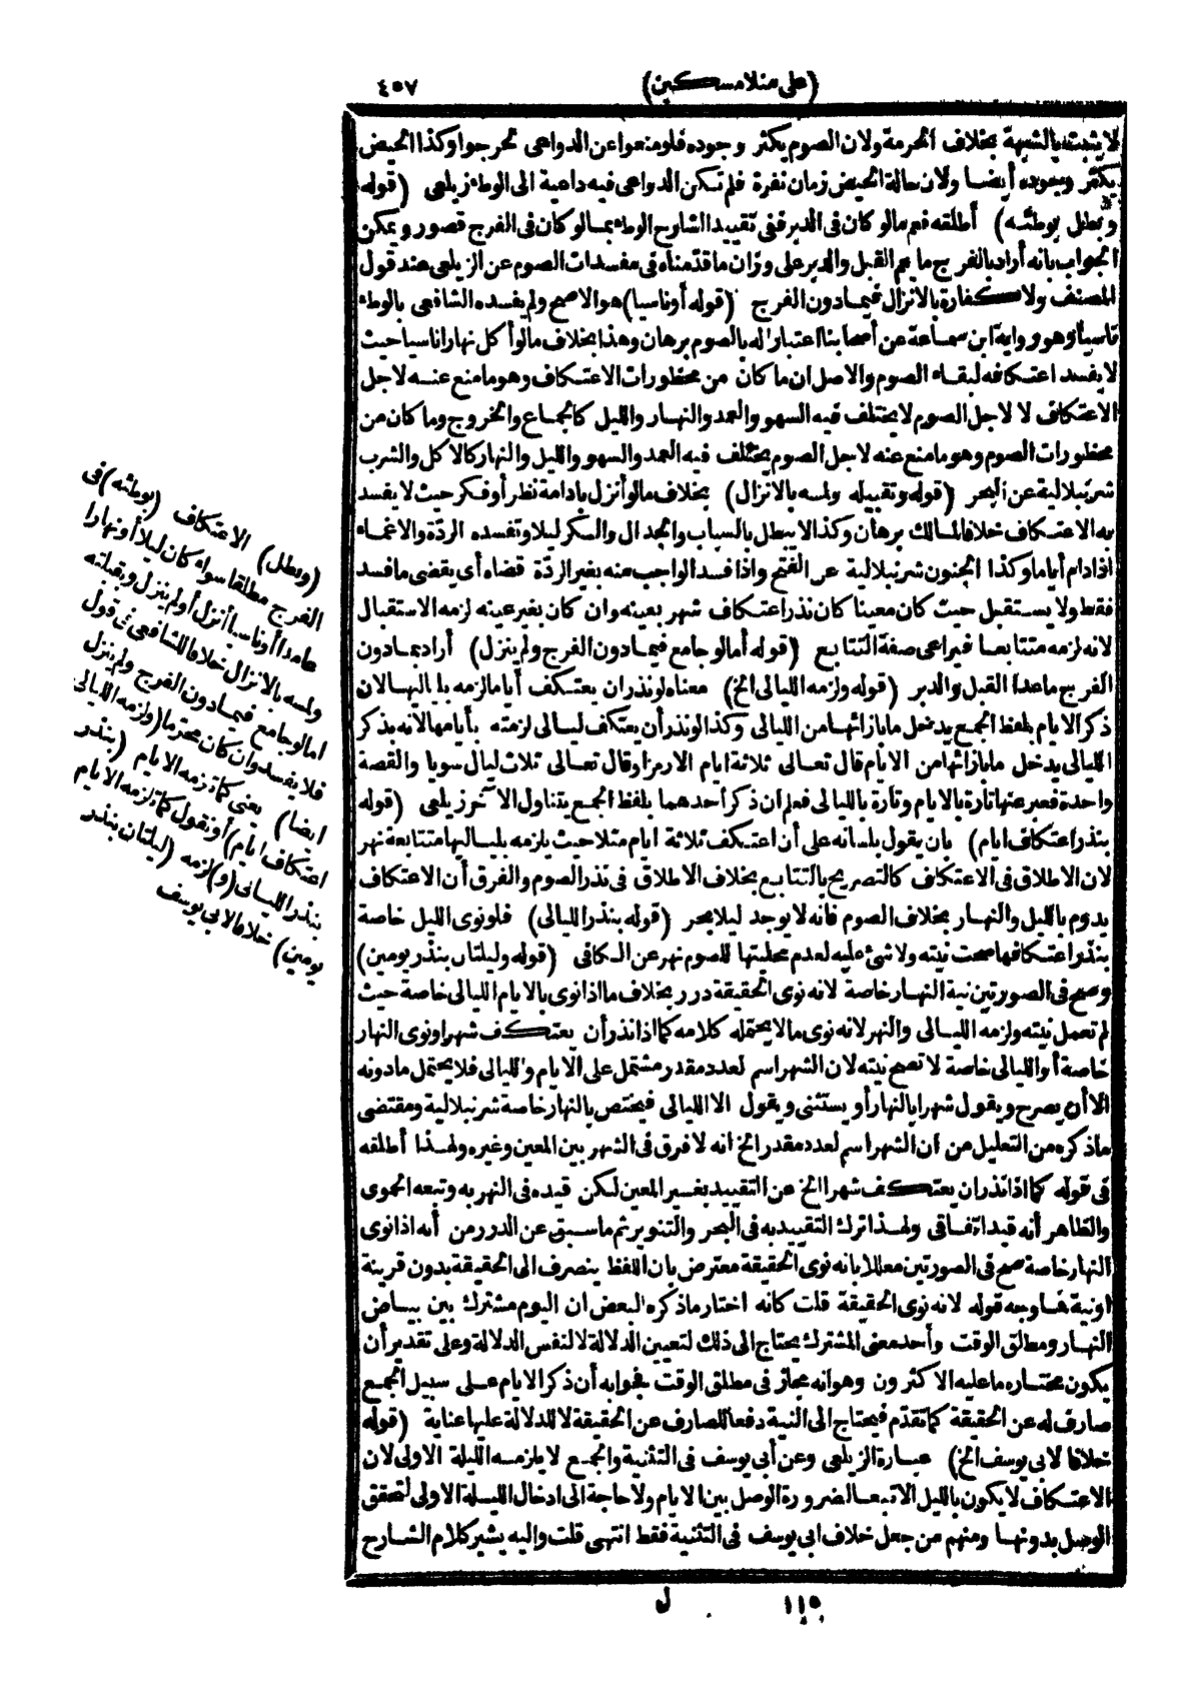 (على منلا مسكين)
٤٥٧
لا يثبت بالشبهة بخلاف الحرمة ولان الصوم يكثر وجوده فلو منعوا عن الدواعى لحرجوا وكذا الحيض
يكثر وجوده أيضا ولان حالة الحيض زمان نفرة فلم تكن الدواعى فيه داعية الى الوطء زيلعى (قوله
وبطل بوطئه) أطلقه فعم ما لو كان فى الدبر ففى تقييد الشارح الوطء بما لو كان فى الفرج قصور ويمكن
الجواب بأنه أراد بالفرج ما يعم القبل والدبر على وزان ما قدمناه فى مفسدات الصوم عن الزيلعى عند قول
المصنف ولا كفارة بالانزال فيما دون الفرج (قوله أو ناسيا) هو الاصح ولم يفسده الشافعى بالوطء
ناسيا وهو رواية ابن سماعة عن أصحابنا اعتبارا له بالصوم برهان وهذا بخلاف ما لو أكل نهارا ناسيا حيث
لا يفسد اعتكافه لبقاء الصوم والاصل ان ما كان من محظورات الاعتكاف وهو ما منع عنه لاجل
الاعتكاف لا لاجل الصوم لا يختلف فيه السهو والعمد والنهار والليل كالجماع والخروج وما كان من
محظورات الصوم وهو ما منع عنه لاجل الصوم يختلف فيه العمد والسهو والليل والنهار كالاكل والشرب
شرنبلالية عن البحر (قوله وتقبيله ولمسه بالانزال) بخلاف ما لو أنزل بادامة نظر أو فكر حيث لا يفسد
به الاعتكاف خلافا لمالك برهان وكذا لا يبطل بالسباب والجدال والسكر ليلا وتفسده الردّة والاغماء
اذا دام أياما وكذا الجنون شرنبلالية عن الفتح واذا فسد الواجب منه بغير الردّة قضاه أى يقضى ما فسد
فقط ولا يستقبل حيث كان معينا كان نذر اعتكاف شهر بعينه وان كان بغير عينه لزمه الاستقبال
لانه لزمه متتابعا فيراعى صفة التتابع (قوله أما لو جامع فيما دون الفرج ولم ينزل) أراد بما دون
الفرج ما عدا القبل والدبر (قوله ولزمه الليالى الخ) معناه لو نذر ان يعتكف أياما لزمه بلياليها لان
ذكر الايام بلفظ الجمع يدخل ما بازائها من الليالى وكذا لو نذر أن يعتكف ليالى لزمته بأيامها لانه بذكر
الليالى يدخل ما بازائها من الايام قال تعالى ثلاثة ايام الا رمزا وقال تعالى ثلاث ليال سويا والقصة
واحدة فعبر عنها تارة بالايام وتارة بالليالى فعلم ان ذكر أحدهما بلفظ الجمع يتناول الآخر زيلعى (قوله
بنذر اعتكاف ايام) بان يقول بلسانه على أن اعتكف ثلاثة ايام مثلا حيث يلزمه بلياليها متتابعة نهر
لان الاطلاق فى الاعتكاف كالتصريح بالتتابع بخلاف الاطلاق فى نذر الصوم والفرق أن الاعتكاف
يدوم بالليل والنهار بخلاف الصوم فانه لا يوجد ليلا بحر (قوله بنذر الليالى) فلو نوى الليل خاصة
بنذر اعتكافها صحت نيته ولا شئ عليه لعدم محليتها للصوم نهر عن الكافى (قوله وليلتان بنذر يومين)
وصح فى الصورتين نية النهار خاصة لانه نوى الحقيقة درر بخلاف ما اذا نوى بالايام الليالى خاصة حيث
لم تعمل نيته ولزمه الليالى والنهر لانه نوى ما لا يحتمله كلامه كما اذا نذر أن يعتكف شهرا ونوى النهار
خاصة أو الليالى خاصة لا تصح نيته لان الشهر اسم لعدد مقدر مشتمل على الايام والليالى فلا يحتمل ما دونه
الا أن يصرح ويقول شهرا بالنهار أو يستثنى ويقول الا الليالى فيختص بالنهار خاصة شرنبلالية ومقتضى
ما ذكره من التعليل من ان الشهر اسم لعدد مقدر الخ انه لا فرق فى الشهر بين المعين وغيره ولهذا أطلقه
فى قوله كما اذا نذر ان يعتكف شهرا الخ عن التقييد بغير المعين لكن قيده فى النهر به وتبعه الحموى
والظاهر أنه قيد اتفاقى ولهذا ترك التقييد به فى البحر والتنوير ثم ما سبق عن الدرر من أنه اذا نوى
النهار خاصة صح فى الصورتين معللا بانه نوى الحقيقة معترض بان اللفظ ينصرف الى الحقيقة بدون قرينة
او نية فما وجه قوله لانه نوى الحقيقة قلت كانه اختار ما ذكره البعض ان اليوم مشترك بين بياض
النهار ومطلق الوقت وأحد معنى المشترك يحتاج الى ذلك لتعيين الدلالة لا لنفس الدلالة وعلى تقدير أن
يكون مختاره ما عليه الاكثرون وهو انه مجاز فى مطلق الوقت فجوابه أن ذكر الايام على سبيل الجمع
صارف له عن الحقيقة كما تقدم فيحتاج الى النية دفعا للصارف عن الحقيقة لا للدلالة عليها عناية (قوله
خلافا لابى يوسف الخ) عبارة الزيلعى وعن أبى يوسف فى التثنية والجمع لا يلزمه الليلة الاولى لان
الاعتكاف لا يكون بالليل الا تبعا لضرورة الوصل بين الايام ولا حاجة الى ادخال الليلة الاولى لتحقق
الوصل بدونها ومنهم من جعل خلاف ابى يوسف فى التثنية فقط انتهى قلت واليه يشير كلام الشارح
(وبطل) الاعتكاف (بوطئه) فى
الفرج مطلقا سواء كان ليلا أو نهارا
عامدا أو ناسيا أنزل أو لم ينزل وبقبلته
ولمسه بالانزال خلافا للشافعى فى قول
اما لو جامع فيما دون الفرج ولم ينزل
فلا يفسد وان كان محرما (ولزمه الليالى
ايضا) يعنى كما تلزمه الايام (بنذر
اعتكاف ايام) أو نقول كما تلزمه الايام
بنذر الليالى (و) لزمه (ليلتان بنذر
يومين) خلافا لابى يوسف
١١٥
ل